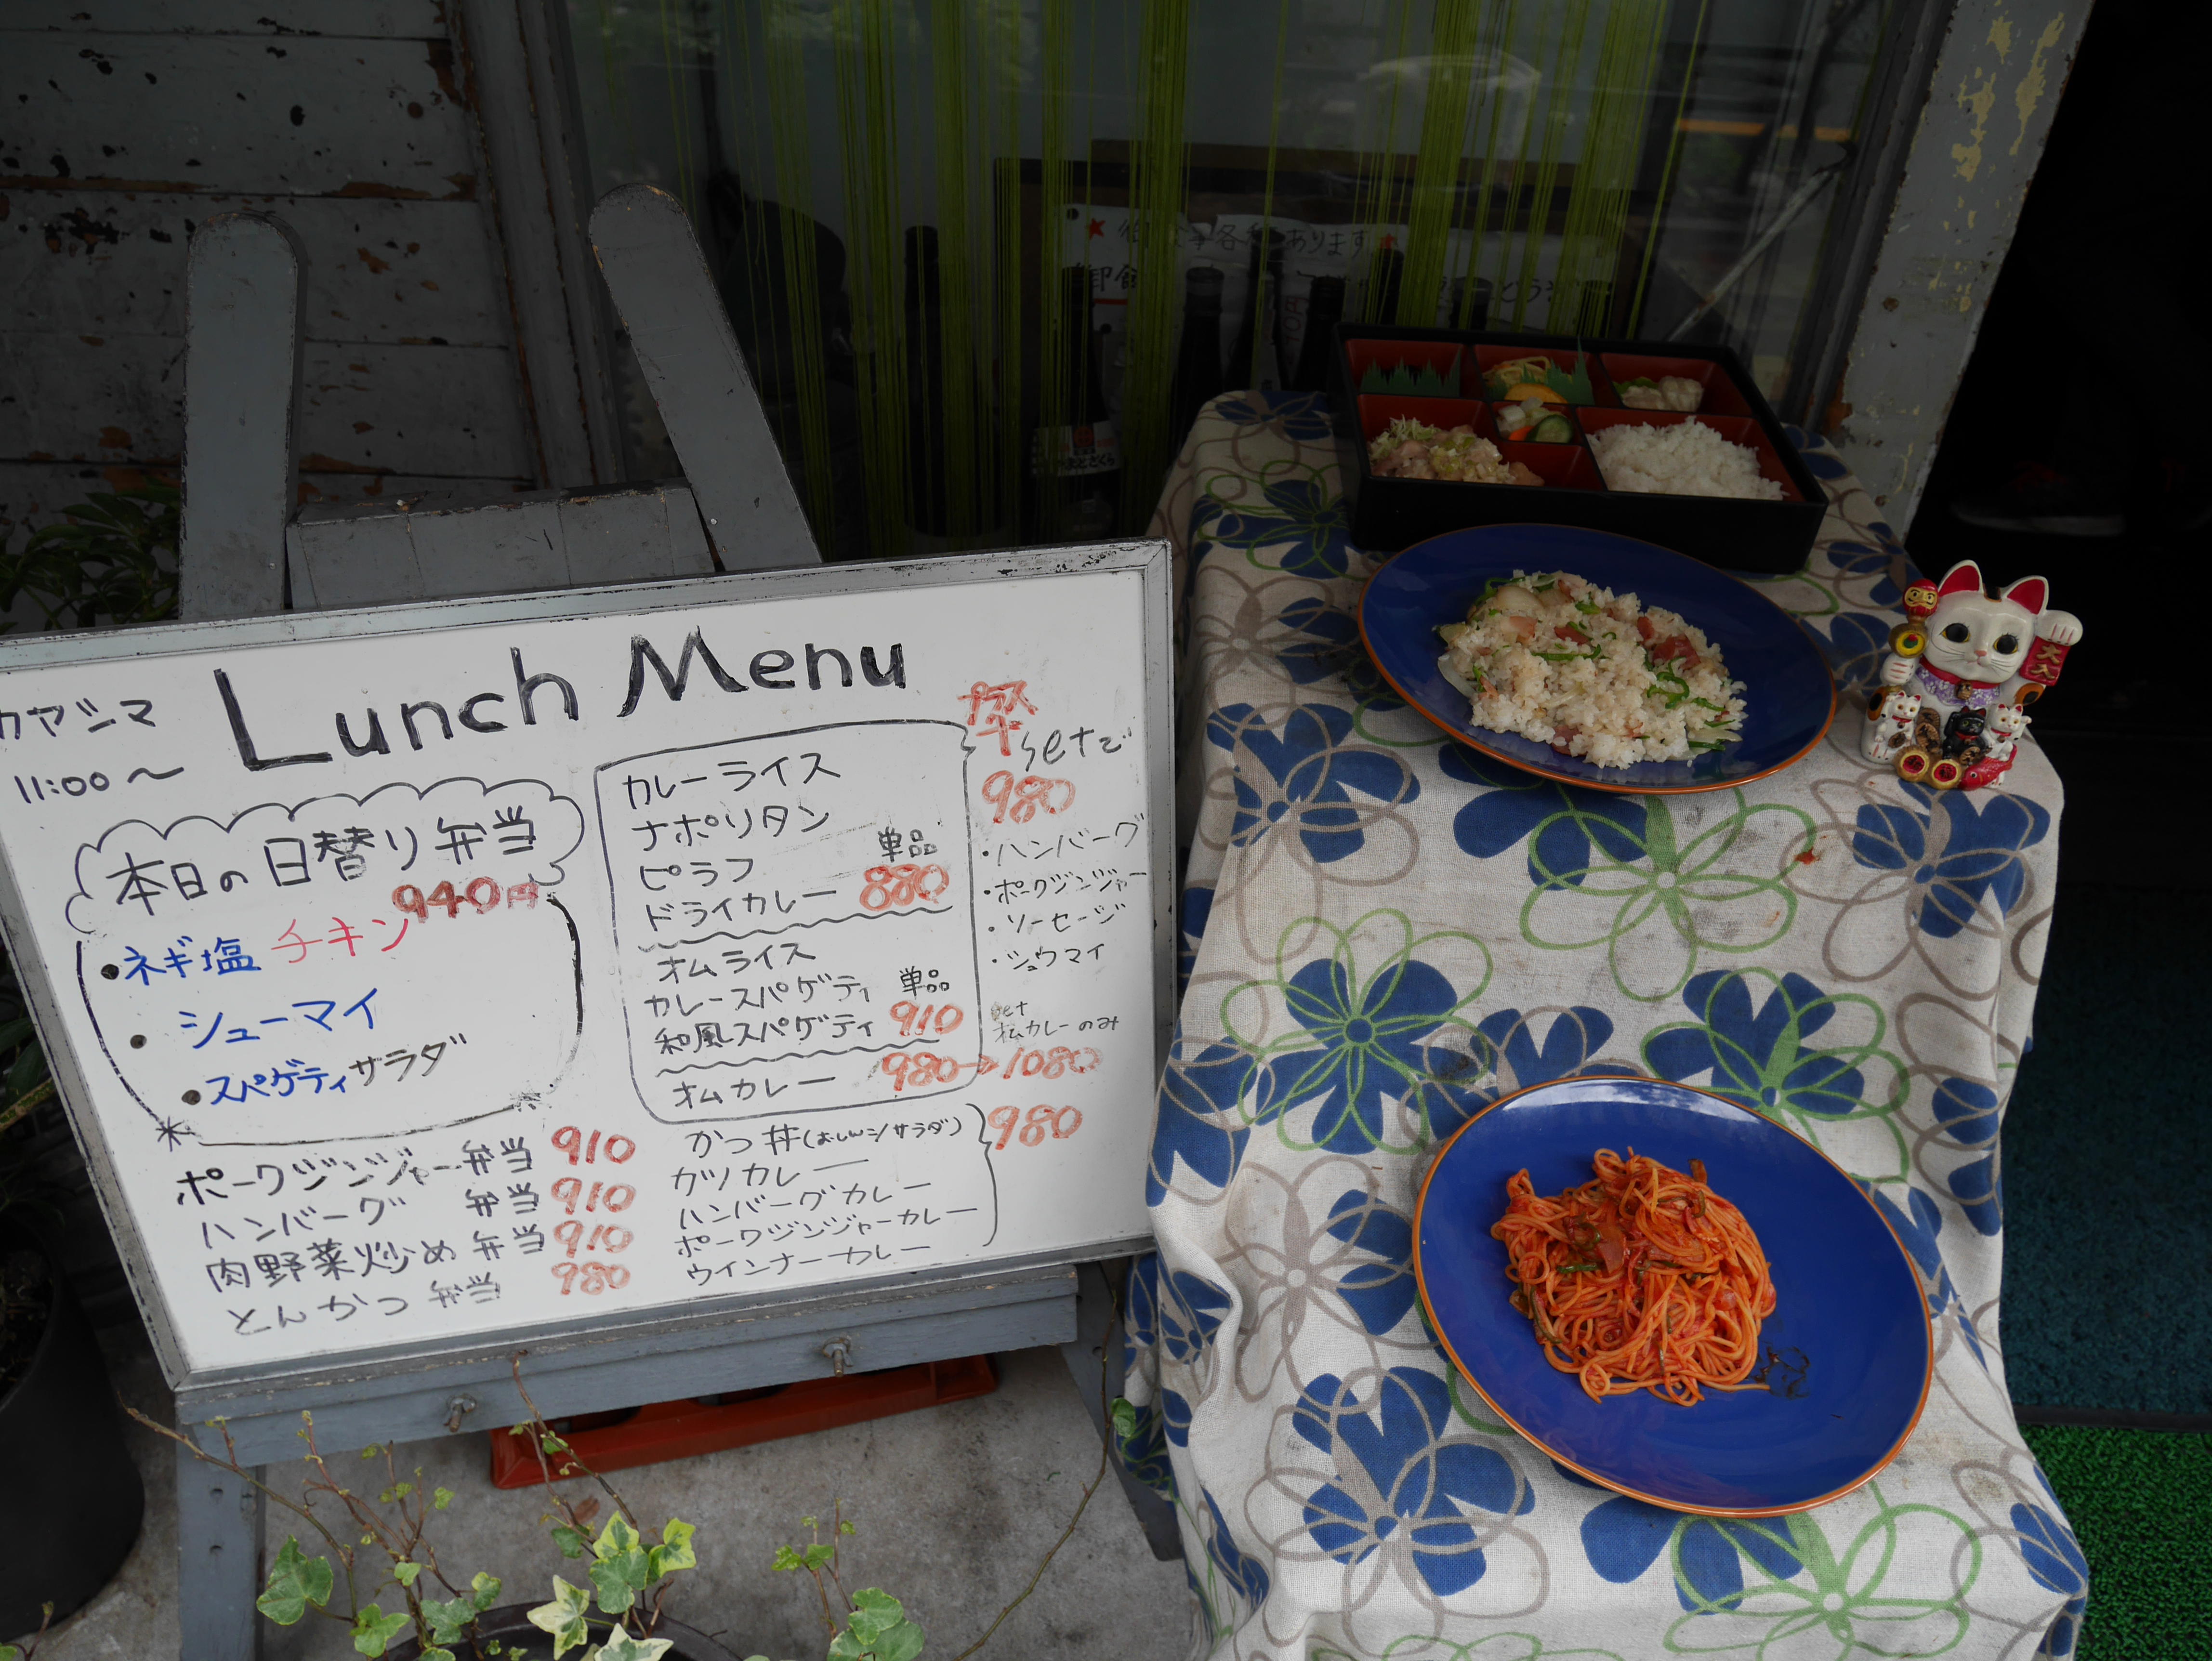 カヤシマ
Lunch Menu
11:00～
本日の日替り弁当
940円
・ネギ塩チキン
・シューマイ
・スパゲティサラダ
ポークジンジャー弁当 910
ハンバーグ 弁当 910
肉野菜炒め 弁当 910
とんかつ 弁当 980
カレーライス
ナポリタン
ピラフ 単品
ドライカレー 880
オムライス
カレースパゲティ 単品
和風スパゲティ 910
オムカレー 980→1080
setで
980
・ハンバーグ
・ポークジンジャー
・ソーセージ
・シュウマイ
set
オムカレーのみ
かつ丼(おしんこ/サラダ) 980
カツカレー
ハンバーグカレー
ポークジンジャーカレー
ウインナーカレー
あります